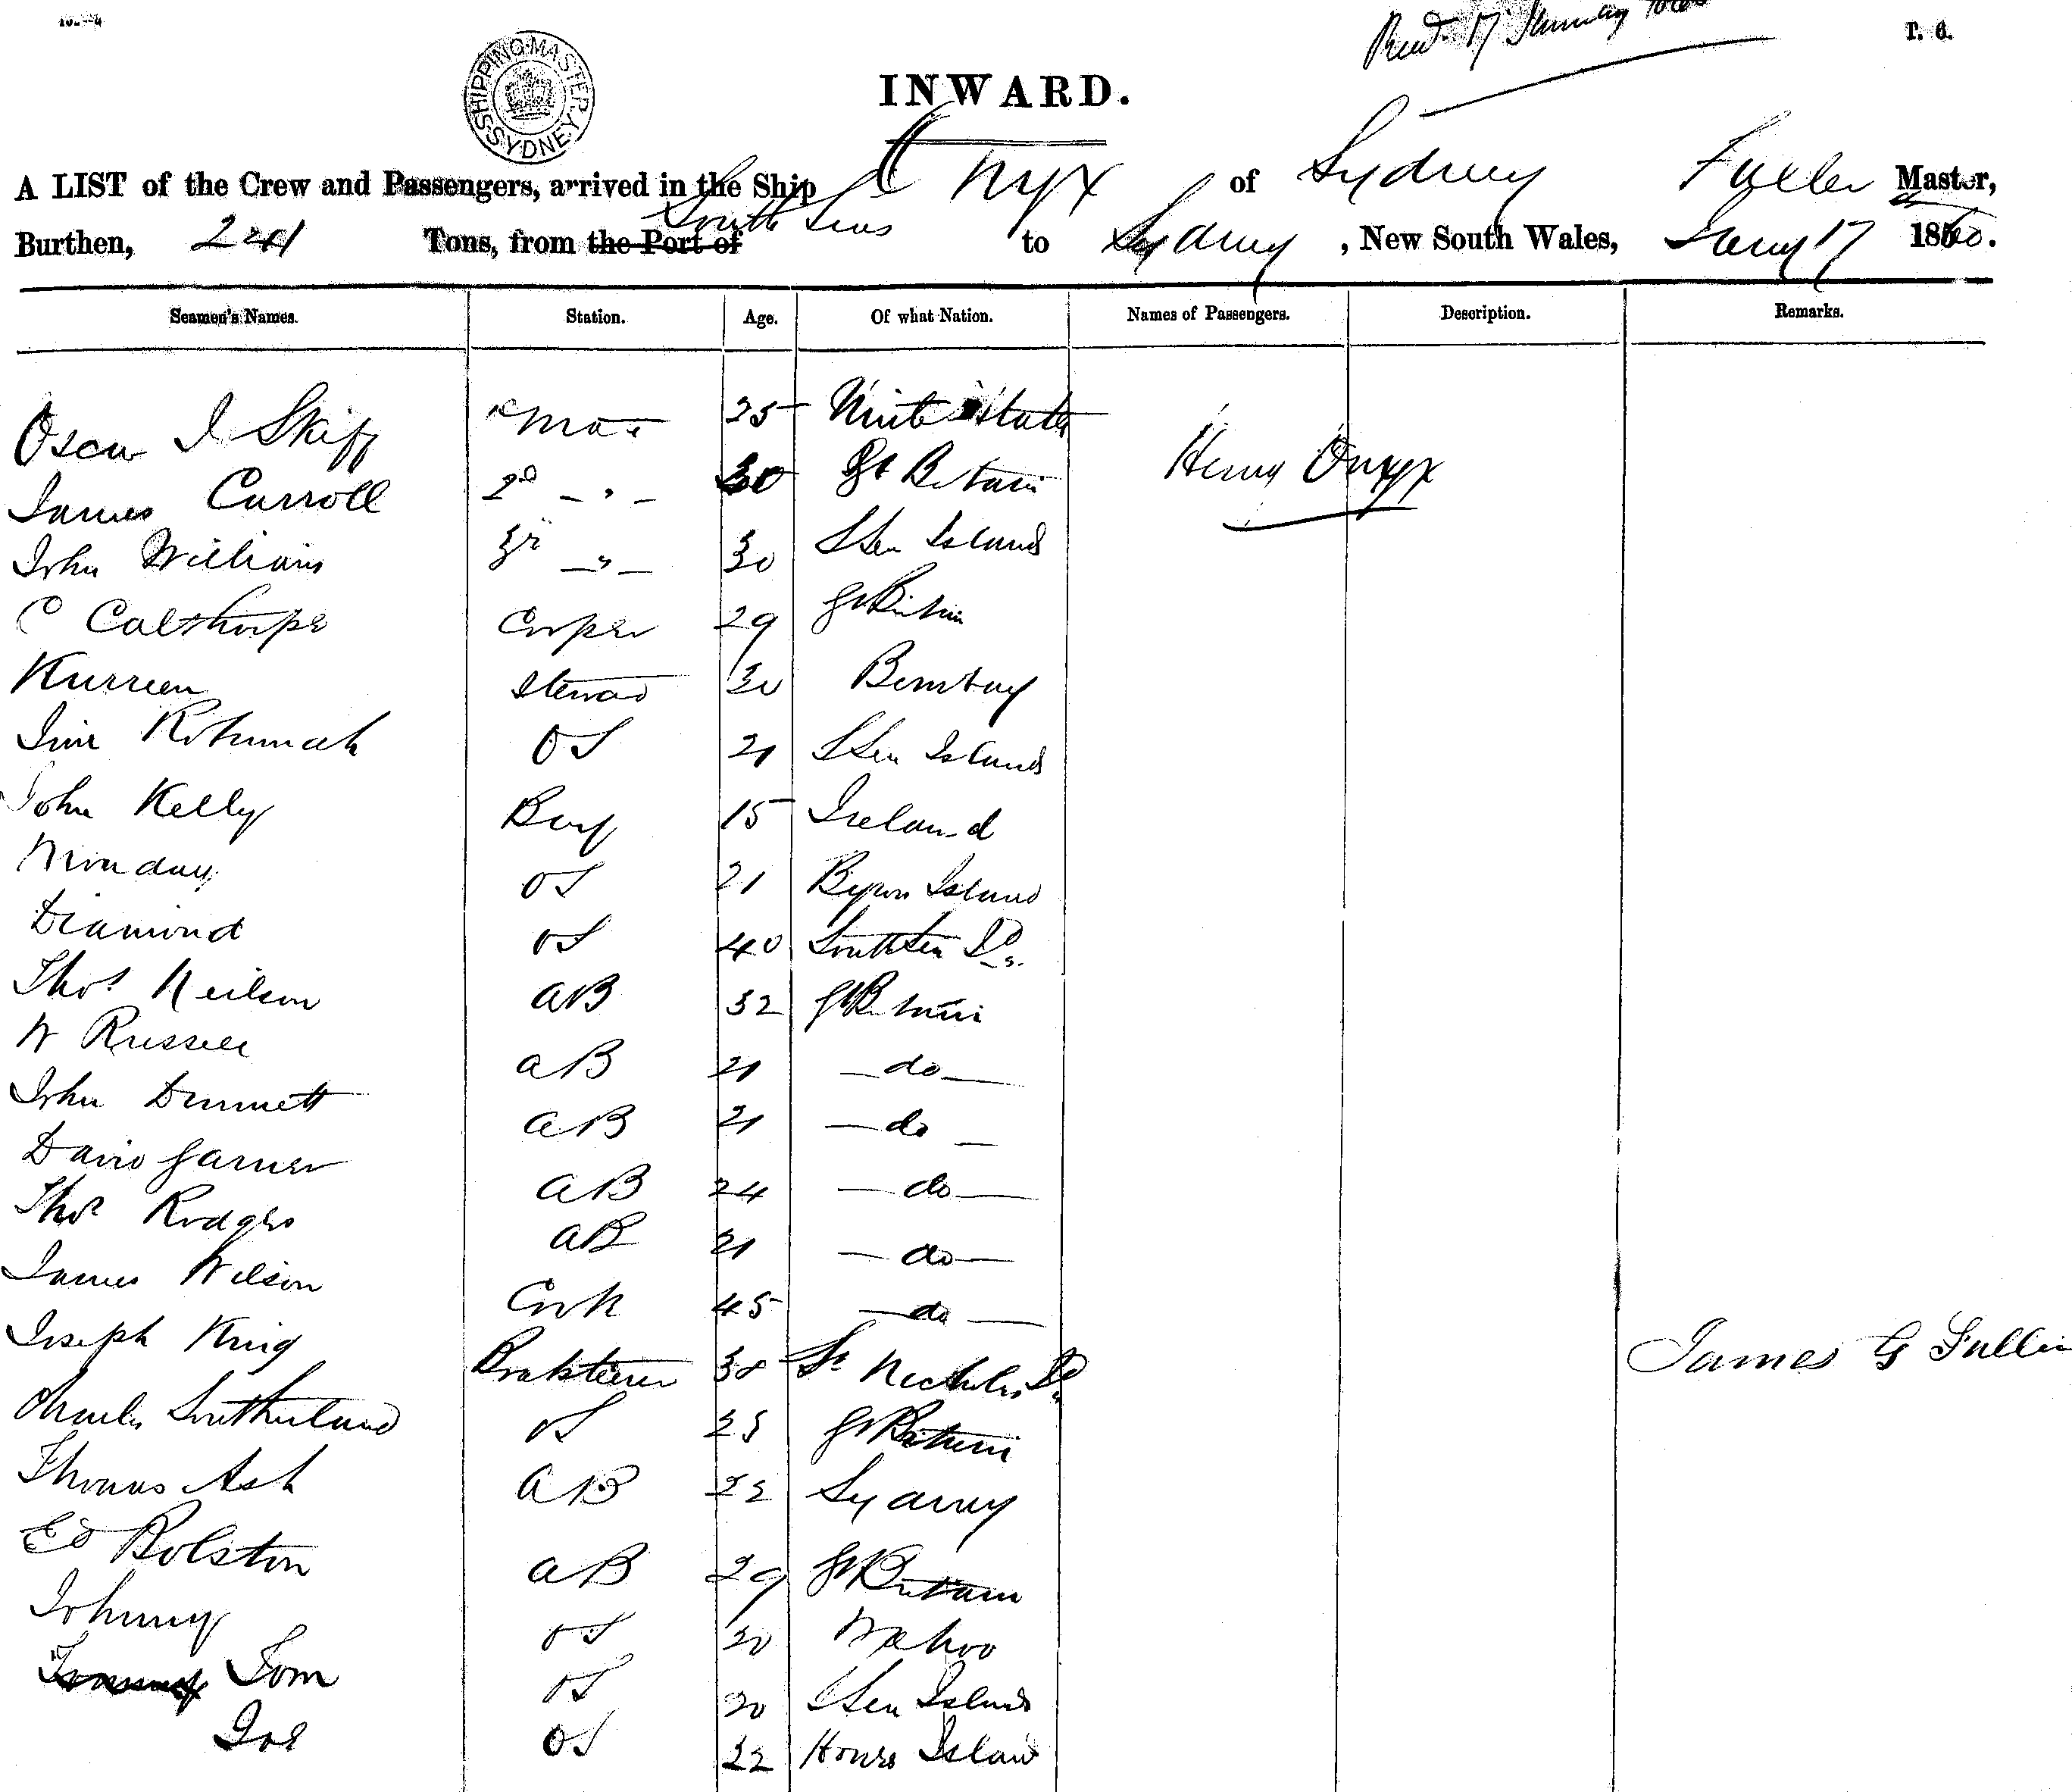 Recd. 17 January
T. 6.
SHIPPING MASTER SYDNEY
INWARD.
A LIST of the Crew and Passengers, arrived in the Ship Onyx of Sydney Fuller Master,
Burthen, 241 Tons, from the Port of South Seas to Sydney, New South Wales, Jany 17 1860.
Seamen's Names. Station. Age. Of what Nation. Names of Passengers. Description. Remarks.
Oscar I Skiff Mate 25 United States
James Carroll 2d - " - 30 Gt Britain Henry Onyx
John William 3r - " - 30 S Sea Islands
C Calthorpe Cooper 29 Gt Britain
Kurreen Steward 30 Bombay
Jim Rotumah OS 21 S Sea Islands
John Kelly Boy 15 Ireland
Monday OS 21 Byron Island
Diamond OS 40 South Sea Ids.
Thos Neilson AB 32 Gt Britain
W Russell AB 21 - do -
John Dummett AB 21 - do -
David Garner AB 24 - do -
Thos Rodgers AB 21 - do -
James Wilson Cook 45 - do -
Joseph King Boatsteerer 38 St Nicholas Id
James G Fuller
Charles Southerland OS 25 Gt Britain
Thomas Ash AB 22 Sydney
Ed Rolston AB 29 Gt Britain
Johnny OS 20
Tommy Tom OS 20 S Sea Islands
Joe OS 22 Island